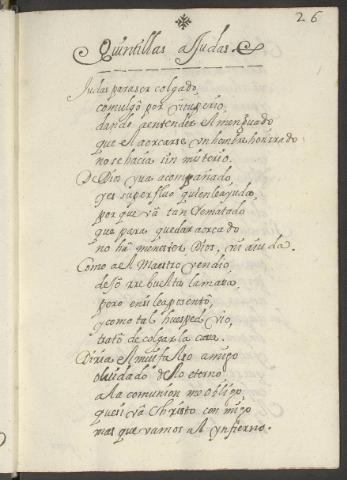 26
Quintillas a Judas.
Judas para ser colgado
comulgó por vituperio,
dando a entender el menguado
que el aorcarse vn hombre honrrado
no se hacia sin misterio.
De Dios yua acompañado,
y es superfluo quien le ayuda,
por que vá tan rematado
que para quedar aorcado
no há menester Dios, ni aiuda.
Como al Maestro vendio,
desó rrebuelta la mata,
pero en si le aposentó,
y como tal huesped vio,
trató de colgar la casa.
Diria el mui falso amigo
oluidado de lo eterno
a la comunion me obligo
que si vá Christo con migo
mas que vamos al ynfierno.